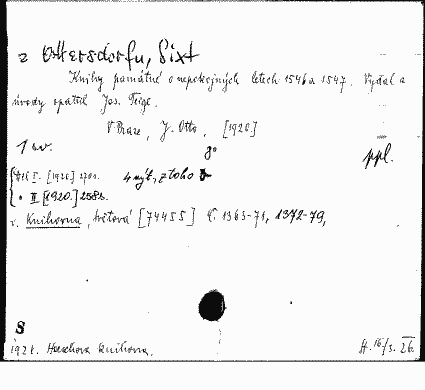 z Ottersdorfu, Sixt
Knihy památné o nepokojných letech 1546 a 1547. Vydal a
úvody opatřil Jos. Teige.
V Praze, J. Otto, [1920]
1 sv. 8°
ppl.
Díl I. [1920] 270 s. 4 výt, z toho
" II [1920.] 258 s.
v. Knihovna, světová [74455] č. 1363-71, 1372-79,
S
1921. Harrachova knihovna. H. 16/3. 26.